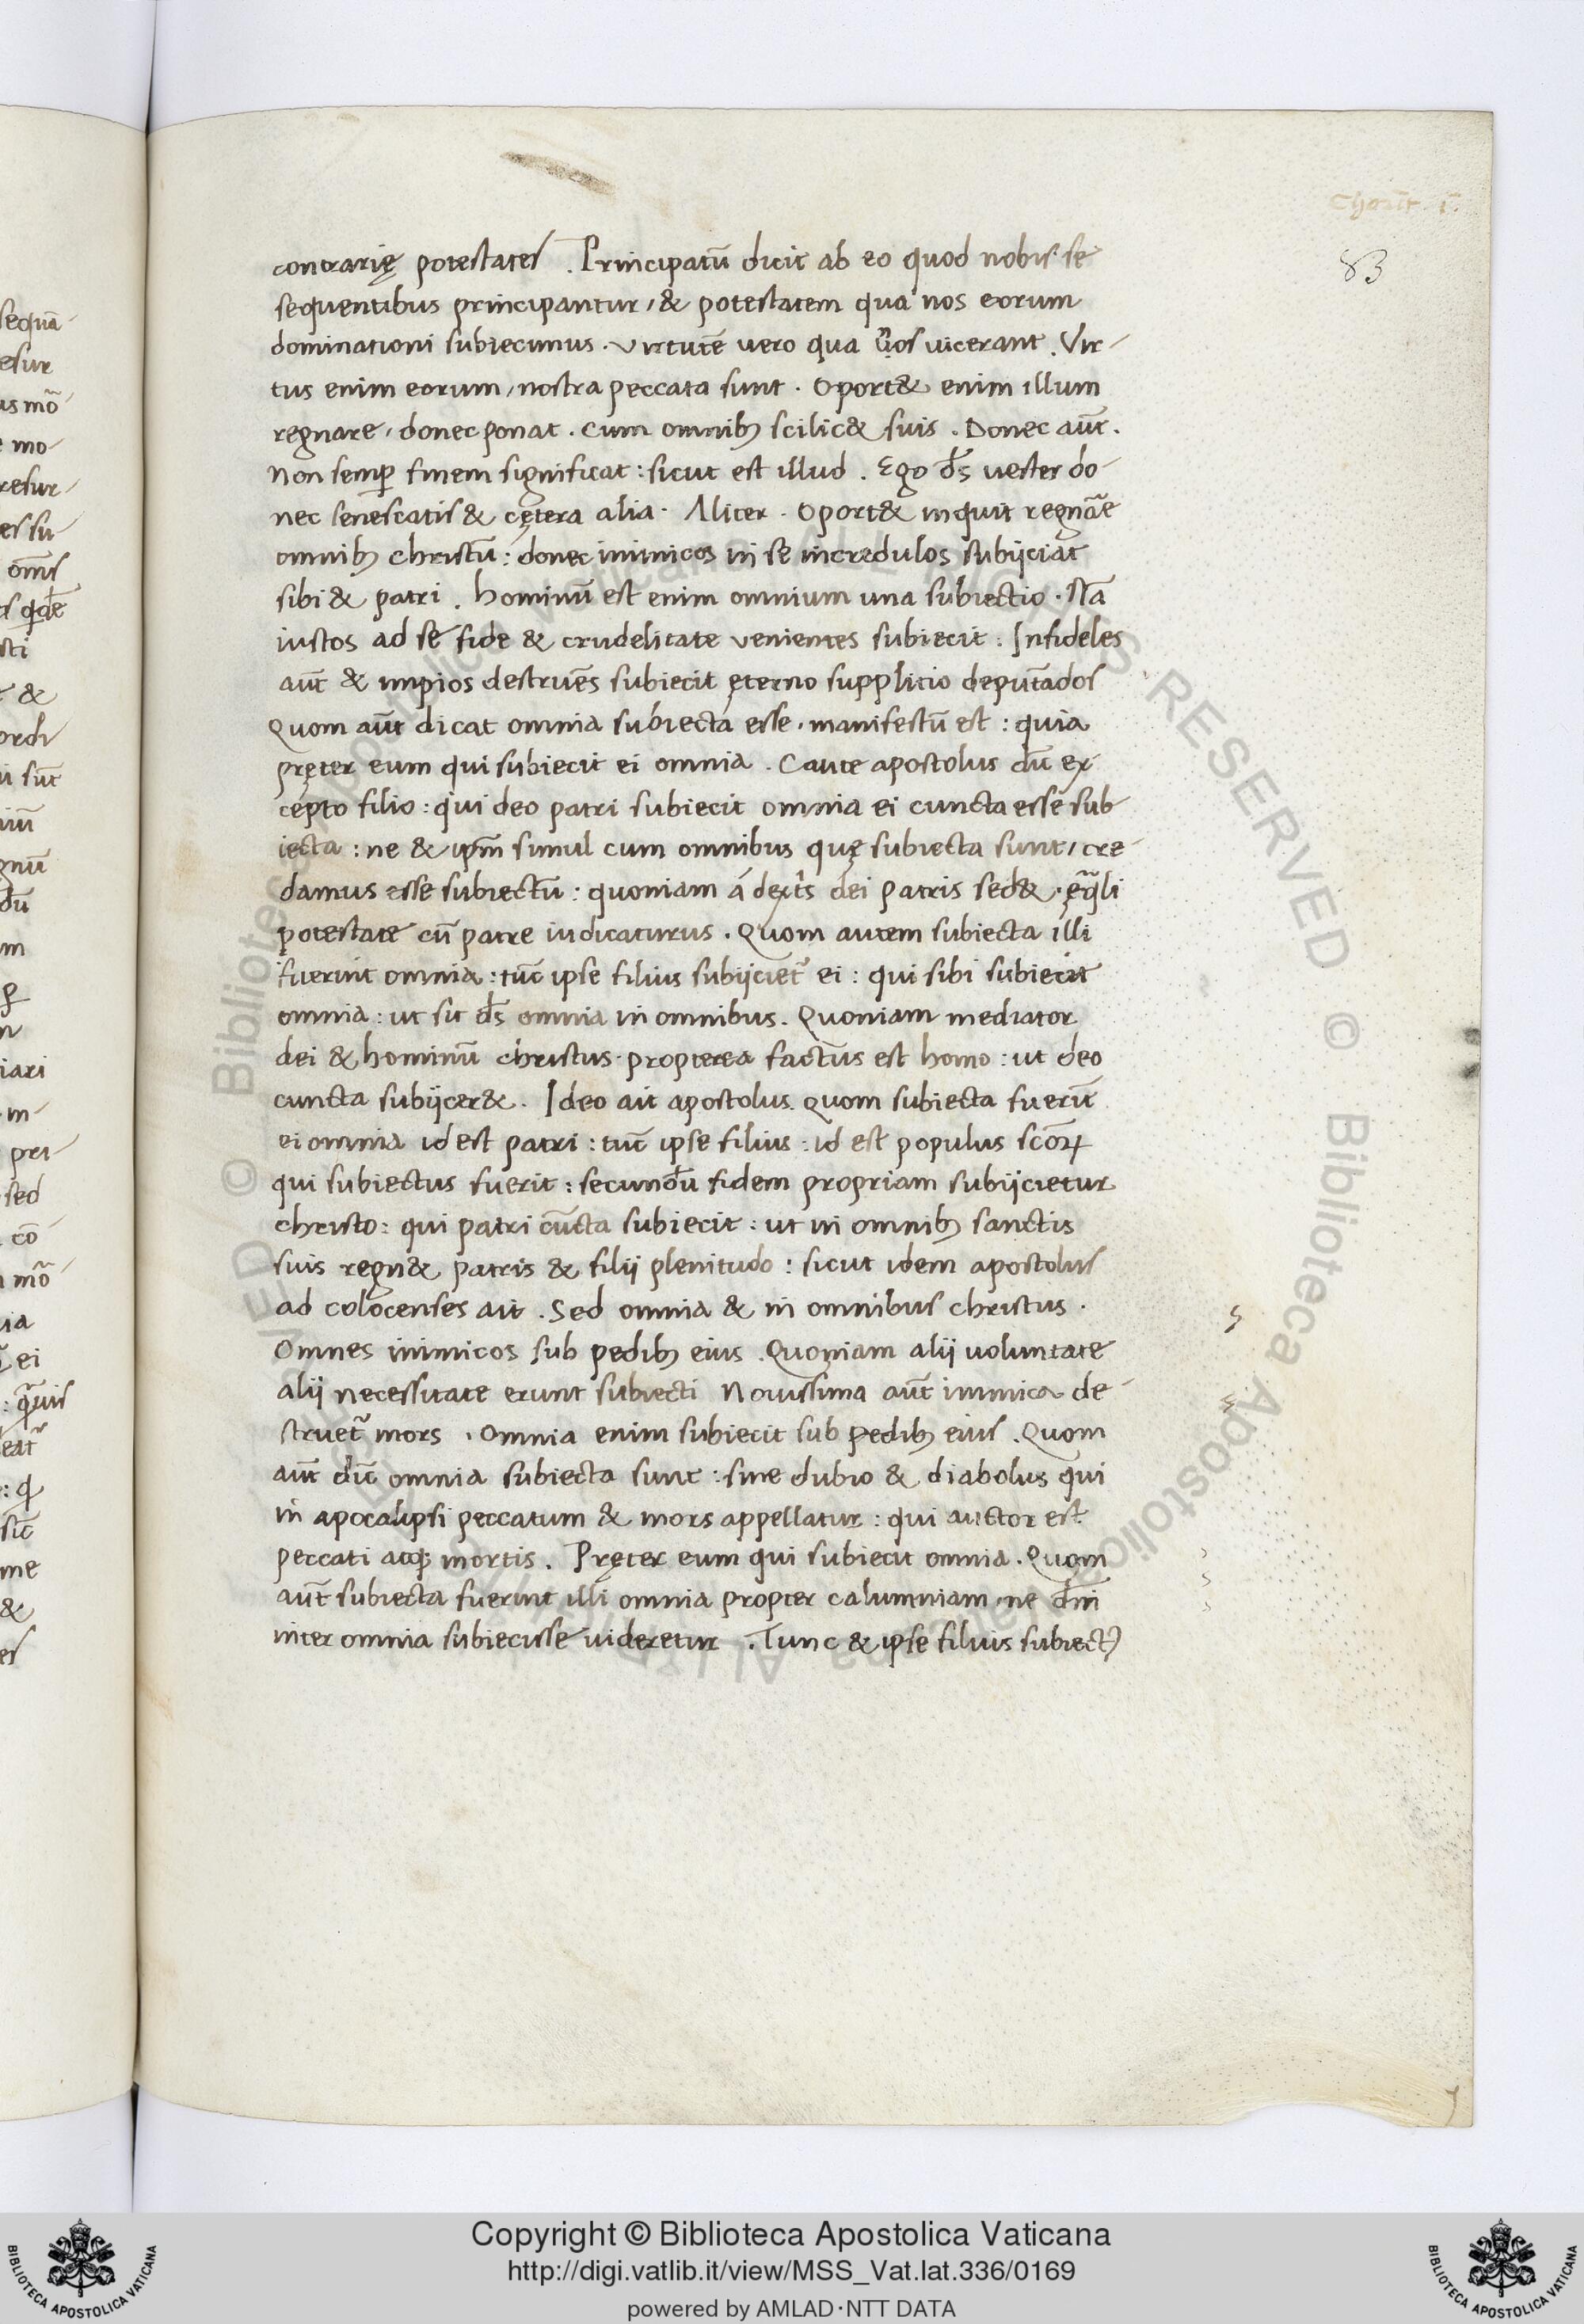 Chorīt. i.
83
contrarię potestates . Principatū dicit ab eo quod nobis se
sequentibus principantur, & potestatem qua nos eorum
dominationi subiecimus . virtutē uero qua nos uicerant . Vir-
tus enim eorum, nostra peccata sunt . Oport& enim illum
regnare, donec ponat . cum omnibꝫ scilic& suis . Donec aūt.
Non semꝑ finem significat : sicut est illud . Ego d̄s uester do-
nec senescatis & cętera alia . Aliter . Oport& inquit regnāe
omnibꝫ christū : donec inimicos in se incredulos subijciat
sibi & patri . hominū est enim omnium una subiectio . Nā
iustos ad se fide & crudelitate venientes subiecit : Infideles
aūt & impios destruēs subiecit ęterno supplicio deputādos
Quom aūt dicat omnia subiecta esse, manifestū est : quia
pręter eum qui subiecit ei omnia . Caute apostolus dū ex-
cepto filio : qui deo patri subiecit omnia ei cuncta esse sub
iecta : ne & ip̄m simul cum omnibus quę subiecta sunt, cre-
damus esse subiectū : quoniam á dext̄s dei patris sed& . ęq̄li
potestate cū patre iudicaturus . Quom autem subiecta illi
fuerint omnia : tūc ipse filius subijciet̄ ei : qui sibi subiecit
omnia : ut sit d̄s omnia in omnibus . Quoniam mediator
dei & hominū christus . propterea factus est homo : ut deo
cuncta subijcer& . Ideo ait apostolus . quom subiecta fuerīt
ei omnia id est patri : tūc ipse filius : id est populus scōꝝ
qui subiectus fuerit : secundū fidem propriam subijcietur
christo : qui patri cūcta subiecit : ut in omnibꝫ sanctis
suis regn& patris & filij plenitudo : sicut idem apostolus
ad colocenses ait . Sed omnia & in omnibus christus .
Omnes inimicos sub pedibꝫ eius . Quoniam alij uoluntate
alij necessitate erunt subiecti Nouissima aūt inimica de-
struet̄ mors . Omnia enim subiecit sub pedibꝫ eius . Quom
aūt dīc omnia subiecta sunt : sine dubio & diabolus qui
in apocalipsi peccatum & mors appellatur : qui auctor est
peccati atqꝫ mortis . Pręter eum qui subiecit omnia . Quom
aūt subiecta fuerint illi omnia propter calumniam, ne dn̄i
inter omnia subiecisse uideretur . Tunc & ipse filius subiectꝰ
Copyright © Biblioteca Apostolica Vaticana
http://digi.vatlib.it/view/MSS_Vat.lat.336/0169
powered by AMLAD·NTT DATA